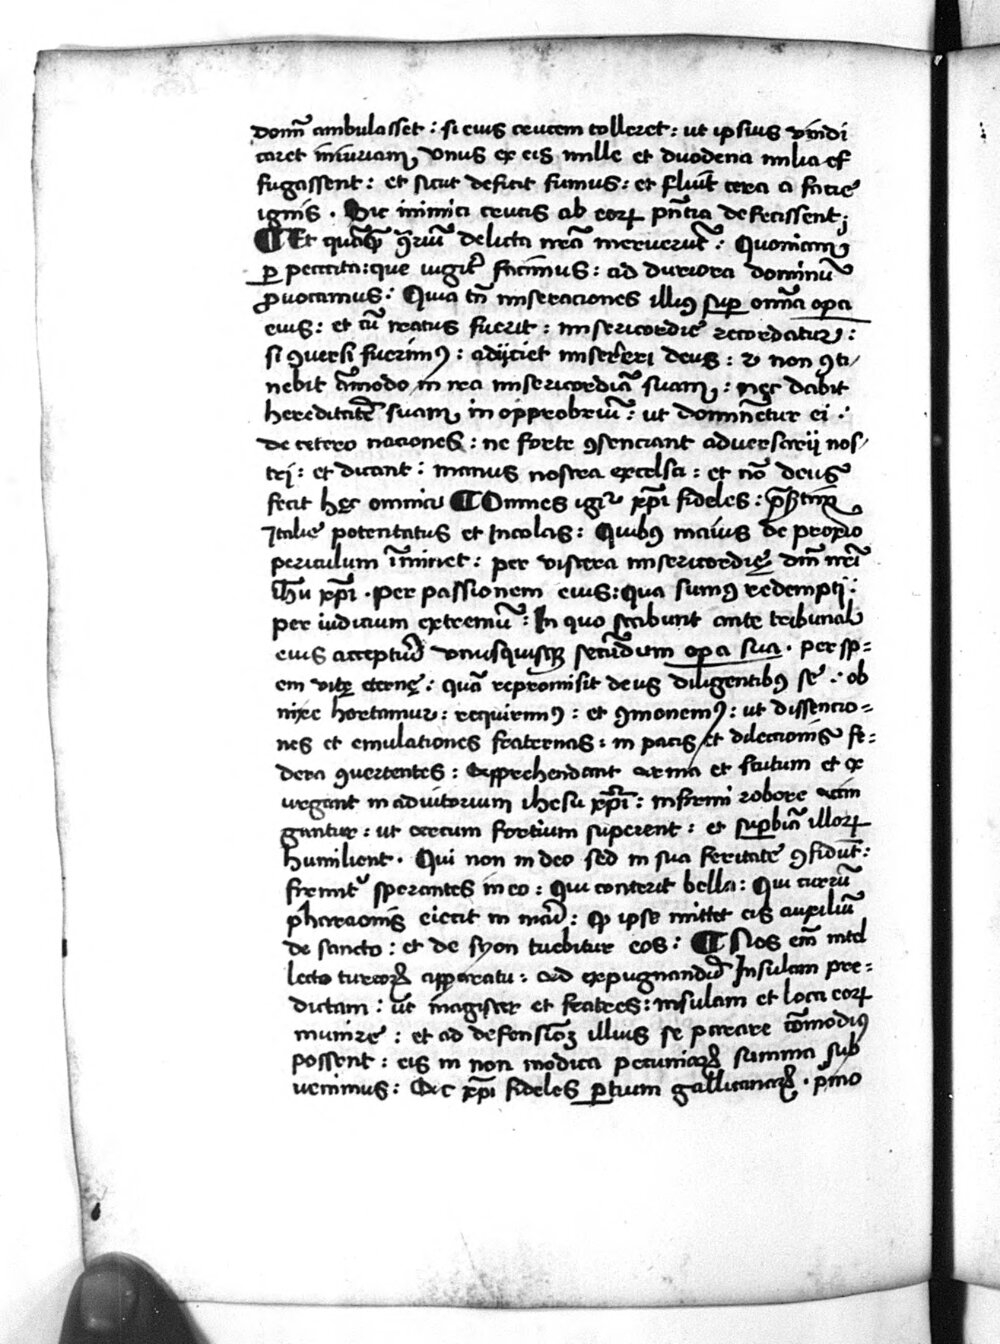 domī ambulasset : si eius crucem tolleret : ut ipsius vindi
caret iniuriam, Vnus ex eis mille et duodena milia ef
fugassent : et sicut deficit fumus : et fluit cera a facie
ignis . Sic inimici crucis ab eorꝝ pn̄tia defecissent ;
¶ Et quāꝙ ꝯriū delicta nr̄a meruerūt : Quoniam
ꝑ peccata : que iugit̄ facimus : ad duriora dominū
ꝓuocamus : Quia tn̄ miseraciones illiꝰ suꝑ omīa oꝑa
eius : et cū iratus fuerit : misericordie recordatur :
si ꝯuersi fuerimꝰ : adijciet misereri deus : et non ꝯti
nebit āmodo in ira misericordiā suam : nec dabit
hereditatē suam in opprobriū : ut dominētur ei :
de cetero naciones : ne forte ꝯsenciant aduersarij nos
tri : et dicant : manus nostra excelsa : et nō deus
fecit hęc omnia ¶ Omnes igiʳ xp̄i fideles : p̄sertim
Italie potentatus et Incolas : Quibꝰ maius de proxio
periculum īminet : per viscera misericordię dn̄i nr̄i
ih̄u xp̄i . per passionem eius : qua sumꝰ redempti :
per iudicium extremū : In quo stabunt ante tribunal
eius accepturꝰ vnusquisqꝫ secūdum oꝑa sua . per sp=
em vitę eternę : quā repromisit deus diligentibꝰ se : ob
nixe hortamur : requirimꝰ : et ꝯmonemꝰ : ut dissencio=
nes et emulationes fraternas : in pacis et dilectionis fe=
dera ꝯuertentes : Apprehendant arma et scutum et ex
urgant in adiutorium ihesu xp̄i : infirmi robore accin
gantur : ut cetum fortium superent : et suꝑbiā illorꝝ
humilient . Qui non in deo sed in sua feritate ꝯfidūt :
fremitʳ sperantes in eo : qui conterit bella : Qui currū
pharaonis eiecit in mari : Qꝫ ipse mittet eis auxiliū
de sancto : et de syon tuebitur eos : ¶ Nos em̄ intel
lecto turcorꝝ apparatu : ad expugnandū Insulam pre=
dictam : ut magister et fratres : insulam et loca eorꝝ
munire : et ad defensiōꝫ illius se parare cōmodiꝰ
possent : eis in non modica pecuniarꝝ summa sub
uenimus : Ac xp̄i fideles ꝑtium gallicanarꝝ . p̄mo